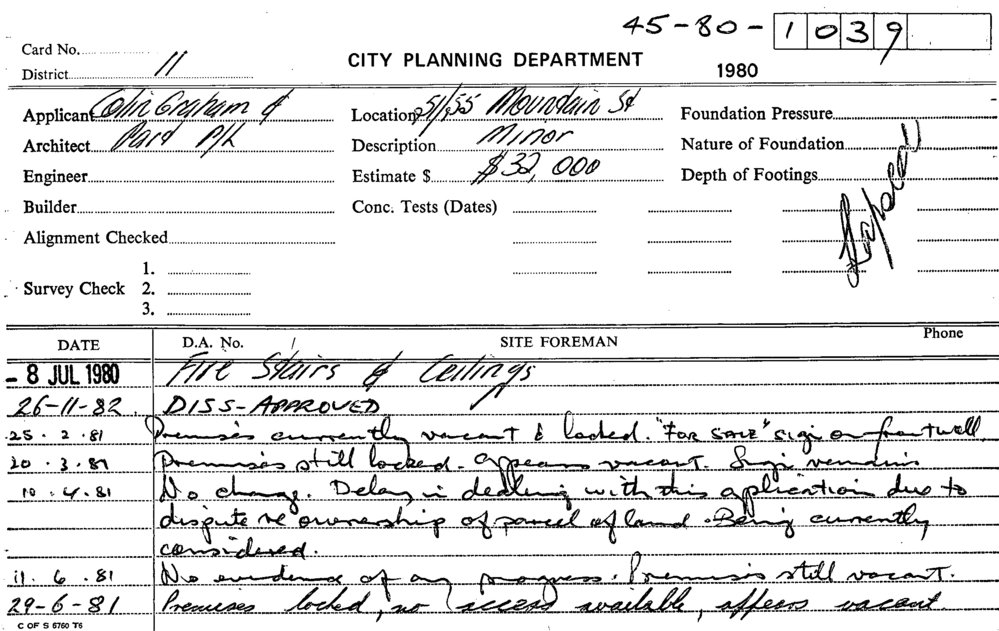 45-80-1039
Card No.
District 11
CITY PLANNING DEPARTMENT
1980
Applicant Colin Graham &
Location 51/55 Mountain St
Foundation Pressure
Architect Pard P/L
Description Minor
Nature of Foundation
Engineer
Estimate $ $32,000
Depth of Footings
Builder
Conc. Tests (Dates)
Alignment Checked
1.
Survey Check 2.
3.
DATE D.A. No. SITE FOREMAN Phone
- 8 JUL 1980 Fire Stairs & Ceilings
26-11-82 DISS-APPROVED
25.2.81 Premises currently vacant & locked. "FOR SALE" sign on front wall
20.3.81 Premises still locked. Appears vacant. Sign remains
10.4.81 No change. Delay in dealing with this application due to
dispute re ownership of parcel of land. Being currently
considered.
11.6.81 No evidence of any progress. Premises still vacant.
29-6-81 Premises locked, no access available, appears vacant.
C OF S 6760 T6